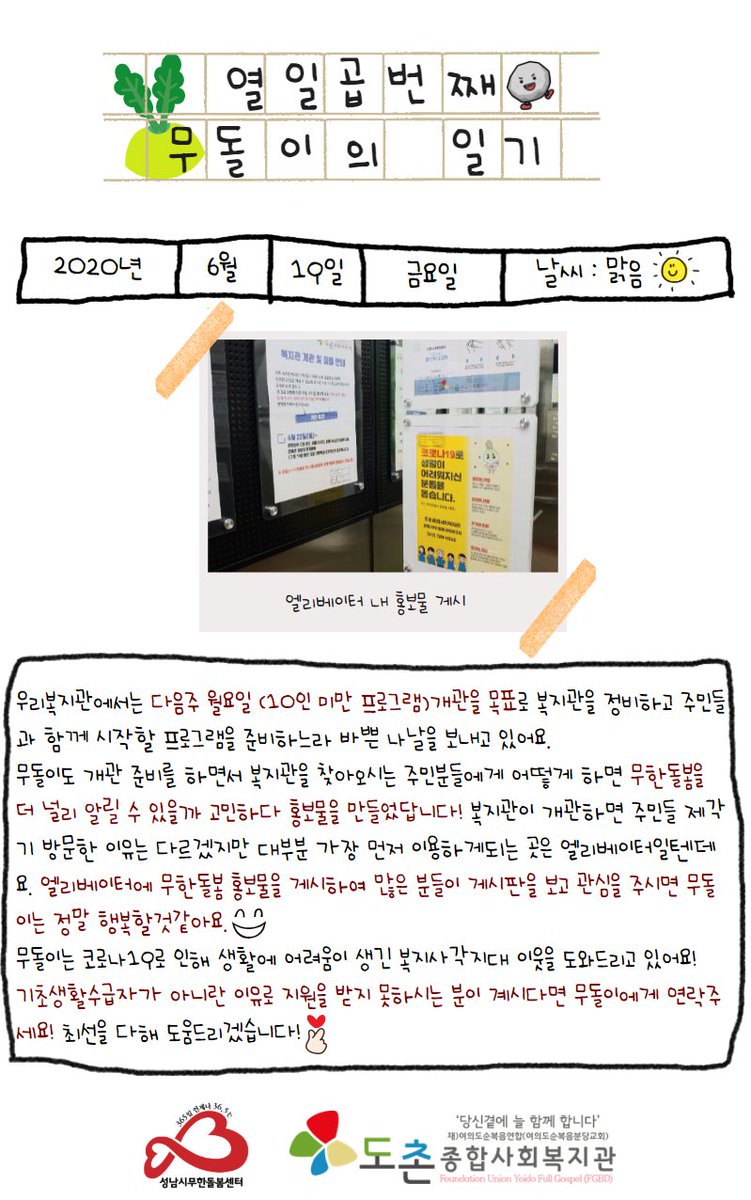 열일곱번째
무돌이의 일기
2020년 6월 19일 금요일 날씨 : 맑음
복지관 개관 및 이용 안내
6월 22일(월)~
코로나19로
생활이
어려워지신
분들을
돕습니다.
엘리베이터 내 홍보물 게시
우리복지관에서는 다음주 월요일 (10인 미만 프로그램)개관을 목표로 복지관을 정비하고 주민들
과 함께 시작할 프로그램을 준비하느라 바쁜 나날을 보내고 있어요.
무돌이도 개관 준비를 하면서 복지관을 찾아오시는 주민분들에게 어떻게 하면 무한돌봄을
더 널리 알릴 수 있을까 고민하다 홍보물을 만들었답니다! 복지관이 개관하면 주민들 제각
기 방문한 이유는 다르겠지만 대부분 가장 먼저 이용하게되는 곳은 엘리베이터일텐데
요. 엘리베이터에 무한돌봄 홍보물을 게시하여 많은 분들이 게시판을 보고 관심을 주시면 무돌
이는 정말 행복할것같아요.
무돌이는 코로나19로 인해 생활에 어려움이 생긴 복지사각지대 이웃을 도와드리고 있어요!
기초생활수급자가 아니란 이유로 지원을 받지 못하시는 분이 계시다면 무돌이에게 연락주
세요! 최선을 다해 도움드리겠습니다!
365일 언제나 36.5도
성남시무한돌봄센터
'당신곁에 늘 함께 합니다'
재)여의도순복음연합(여의도순복음분당교회)
도촌종합사회복지관
Foundation Union Yoido Full Gospel (FGBD)